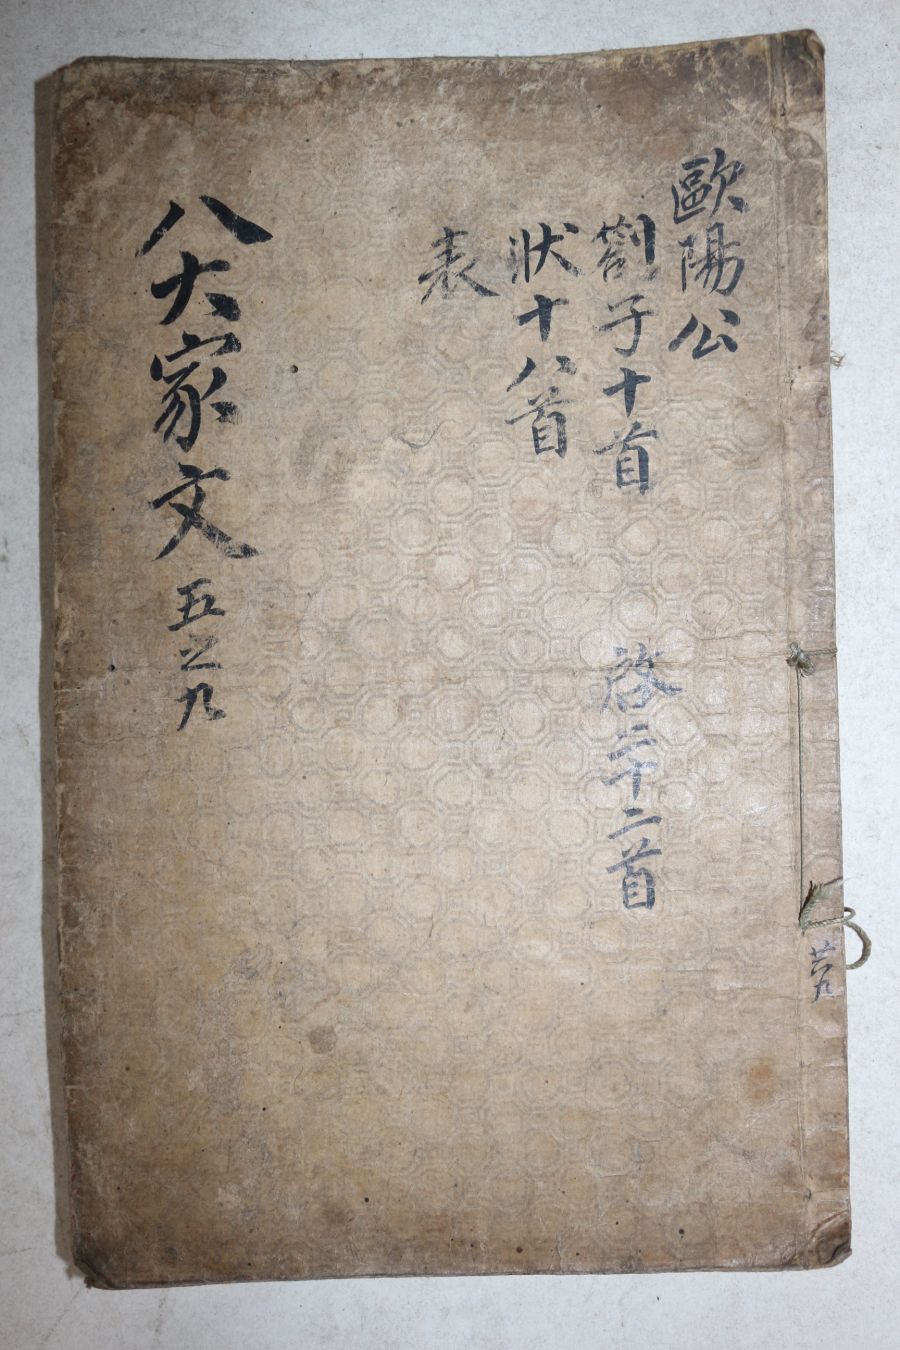 歐陽公
劄子十首 啓二十二首
狀十八首
表
八大家文 五之九
共六九